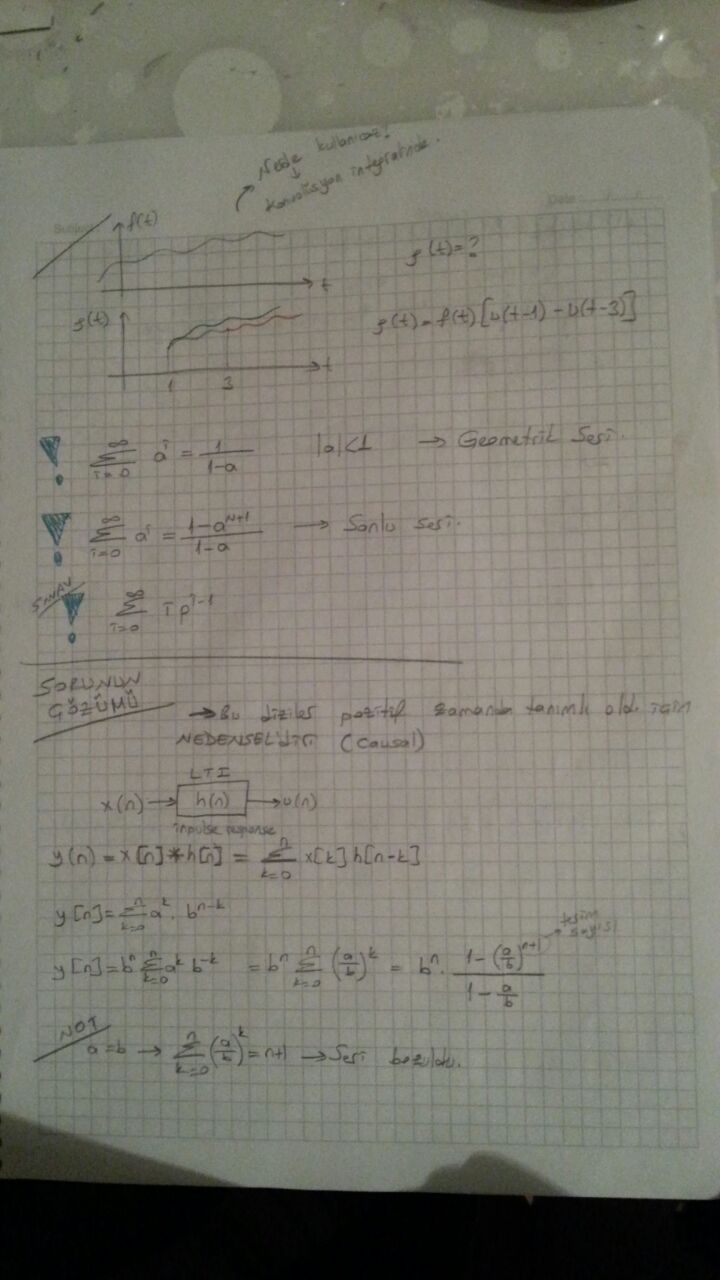 Nede kullanıcaz?
↓
Konvolüsyon integralinde.
Date
f(t)
t
g(t)=?
g(t)
1 3
t
g(t)=f(t)[u(t-1)-u(t-3)]
! ∞∑i=0 a^i = 1/(1-a) |a|<1 → Geometrik Seri.
! ∞∑i=0 a^i = (1-a^(N+1))/(1-a) → Sonlu seri.
SINAV
! ∞∑i=0 i p^(i-1)
SORUNUN
ÇÖZÜMÜ
→ Bu diziler pozitif zamanda tanımlı old. için
NEDENSELdir (Causal)
LTI
x(n) → h(n) → y(n)
inpulse response
y(n) = x[n]*h[n] = n∑k=0 x[k] h[n-k]
y[n] = n∑k=0 a^k . b^(n-k)
terim
sayısı
y[n] = b^n n∑k=0 a^k b^(-k) = b^n n∑k=0 (a/b)^k = b^n . (1-(a/b)^(n+1))/(1-a/b)
NOT
a=b → n∑k=0 (a/b)^k = n+1 → Seri bozuldu.